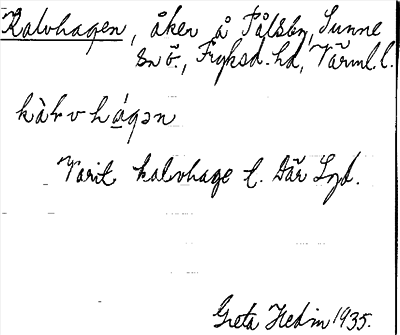 Kalvhagen, åker å Pålsby, Sunne
sn ö., Fryksd. hd, Värml. l.
kàlv hágən
Varit kalvhage l. där
Greta Hedin 1935.